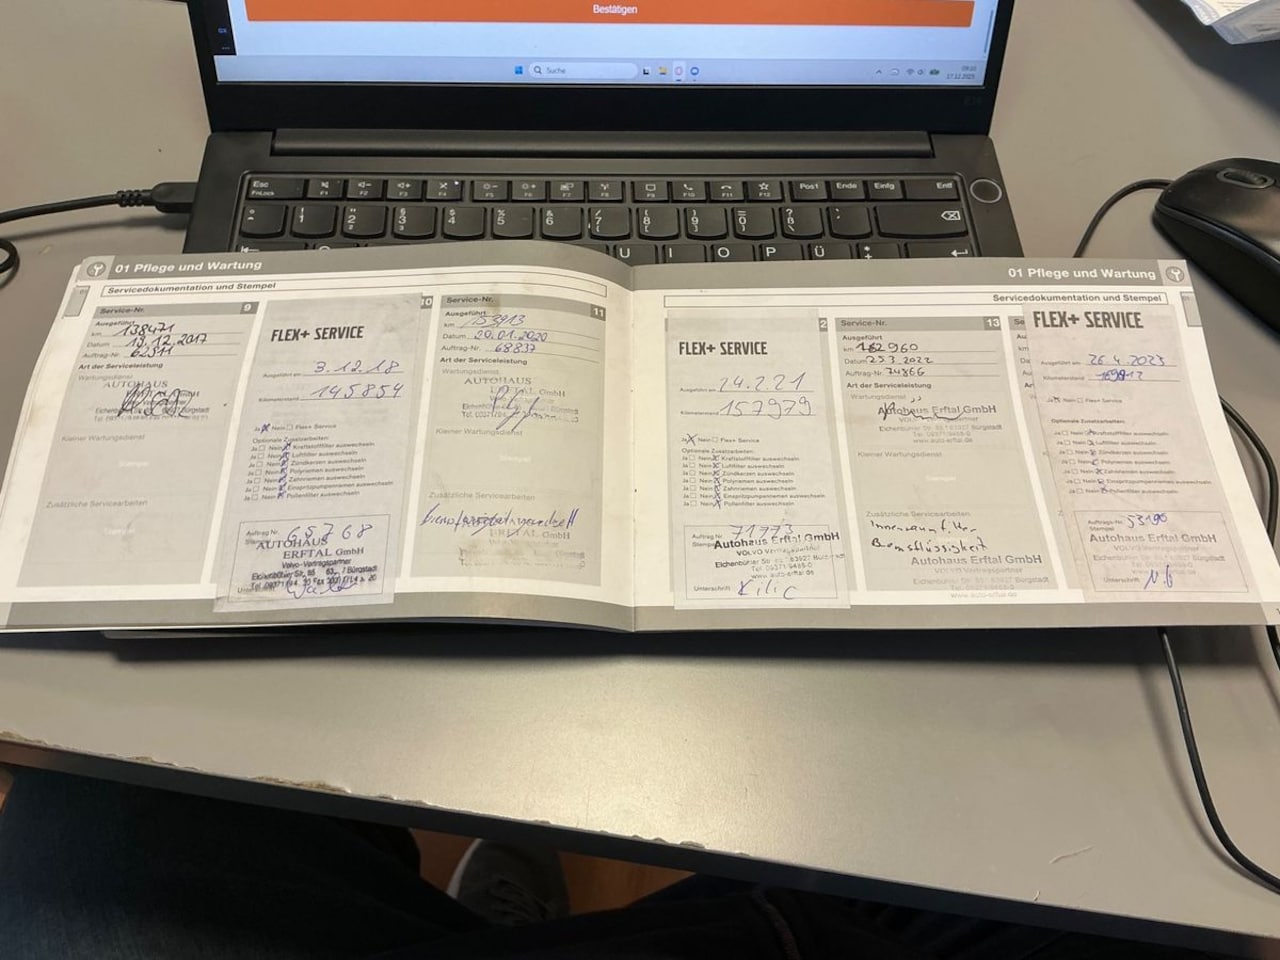 Bestätigen
Suche
17.12.2025
Esc
FnLock
F1
F2
F3
F4
F5
F6
F7
F8
F9
F10
F11
F12
Pos1
Ende
Einfg
Entf
U
I
O
P
Ü
01 Pflege und Wartung
Servicedokumentation und Stempel
9
Service-Nr.
Ausgeführt
km 138471
Datum 13.12.2017
Auftrag-Nr. 62511
Art der Serviceleistung
Wartungsdienst
AUTOHAUS
Kleiner Wartungsdienst
Stempel
Zusätzliche Servicearbeiten
Stempel
10
FLEX+ SERVICE
Ausgeführt am 3.12.18
Kilometerstand 145854
Ja Nein Flex+ Service
Optionale Zusatzarbeiten:
Ja Nein Kraftstofffilter auswechseln
Ja Nein Luftfilter auswechseln
Ja Nein Zündkerzen auswechseln
Ja Nein Polyriemen auswechseln
Ja Nein Zahnriemen auswechseln
Ja Nein Einspritzpumpenriemen auswechseln
Ja Nein Pollenfilter auswechseln
Auftrag Nr. 65768
Stempel
AUTOHAUS
ERFTAL GmbH
Volvo-Vertragspartner
Unterschrift
Service-Nr.
11
Ausgeführt
km 153913
Datum 20.01.2020
Auftrag-Nr. 68837
Art der Serviceleistung
Wartungsdienst
AUTOHAUS
ERFTAL GmbH
Kleiner Wartungsdienst
Stempel
Zusätzliche Servicearbeiten
ERFTAL GmbH
01 Pflege und Wartung
Servicedokumentation und Stempel
2
FLEX+ SERVICE
Ausgeführt am 24.2.21
Kilometerstand 157979
Ja Nein Flex+ Service
Optionale Zusatzarbeiten:
Ja Nein Kraftstofffilter auswechseln
Ja Nein Luftfilter auswechseln
Ja Nein Zündkerzen auswechseln
Ja Nein Polyriemen auswechseln
Ja Nein Zahnriemen auswechseln
Ja Nein Einspritzpumpenriemen auswechseln
Ja Nein Pollenfilter auswechseln
Auftrag Nr. 71773
Stempel
Autohaus Erftal GmbH
VOLVO Vertragspartner
Eichenbühler Str. 85 63927 Bürgstadt
Tel. 09371/9488-0
www.auto-erftal.de
Unterschrift Kilic
Service-Nr.
13
Ausgeführt
km 162960
Datum 25.3.2022
Auftrag-Nr. 74866
Art der Serviceleistung
Wartungsdienst
Autohaus Erftal GmbH
VOLVO Vertragspartner
Eichenbühler Str. 85 63927 Bürgstadt
Tel. 09371/9488-0
www.auto-erftal.de
Kleiner Wartungsdienst
Stempel
Zusätzliche Servicearbeiten
Innenraumfilter
Bremsflüssigkeit
Autohaus Erftal GmbH
VOLVO Vertragspartner
Eichenbühler Str. 85 63927 Bürgstadt
Tel. 09371/9488-0
www.auto-erftal.de
Se
FLEX+ SERVICE
Ausgeführt am 26.4.2023
Kilometerstand
Ja Nein Flex+ Service
Optionale Zusatzarbeiten:
Ja Nein Kraftstofffilter auswechseln
Ja Nein Luftfilter auswechseln
Ja Nein Zündkerzen auswechseln
Ja Nein Polyriemen auswechseln
Ja Nein Zahnriemen auswechseln
Ja Nein Einspritzpumpenriemen auswechseln
Ja Nein Pollenfilter auswechseln
Auftrags-Nr. 53190
Stempel
Autohaus Erftal GmbH
VOLVO Vertragspartner
Eichenbühler Str. 85 63927 Bürgstadt
Tel. 09371/9488-0
www.auto-erftal.de
Unterschrift